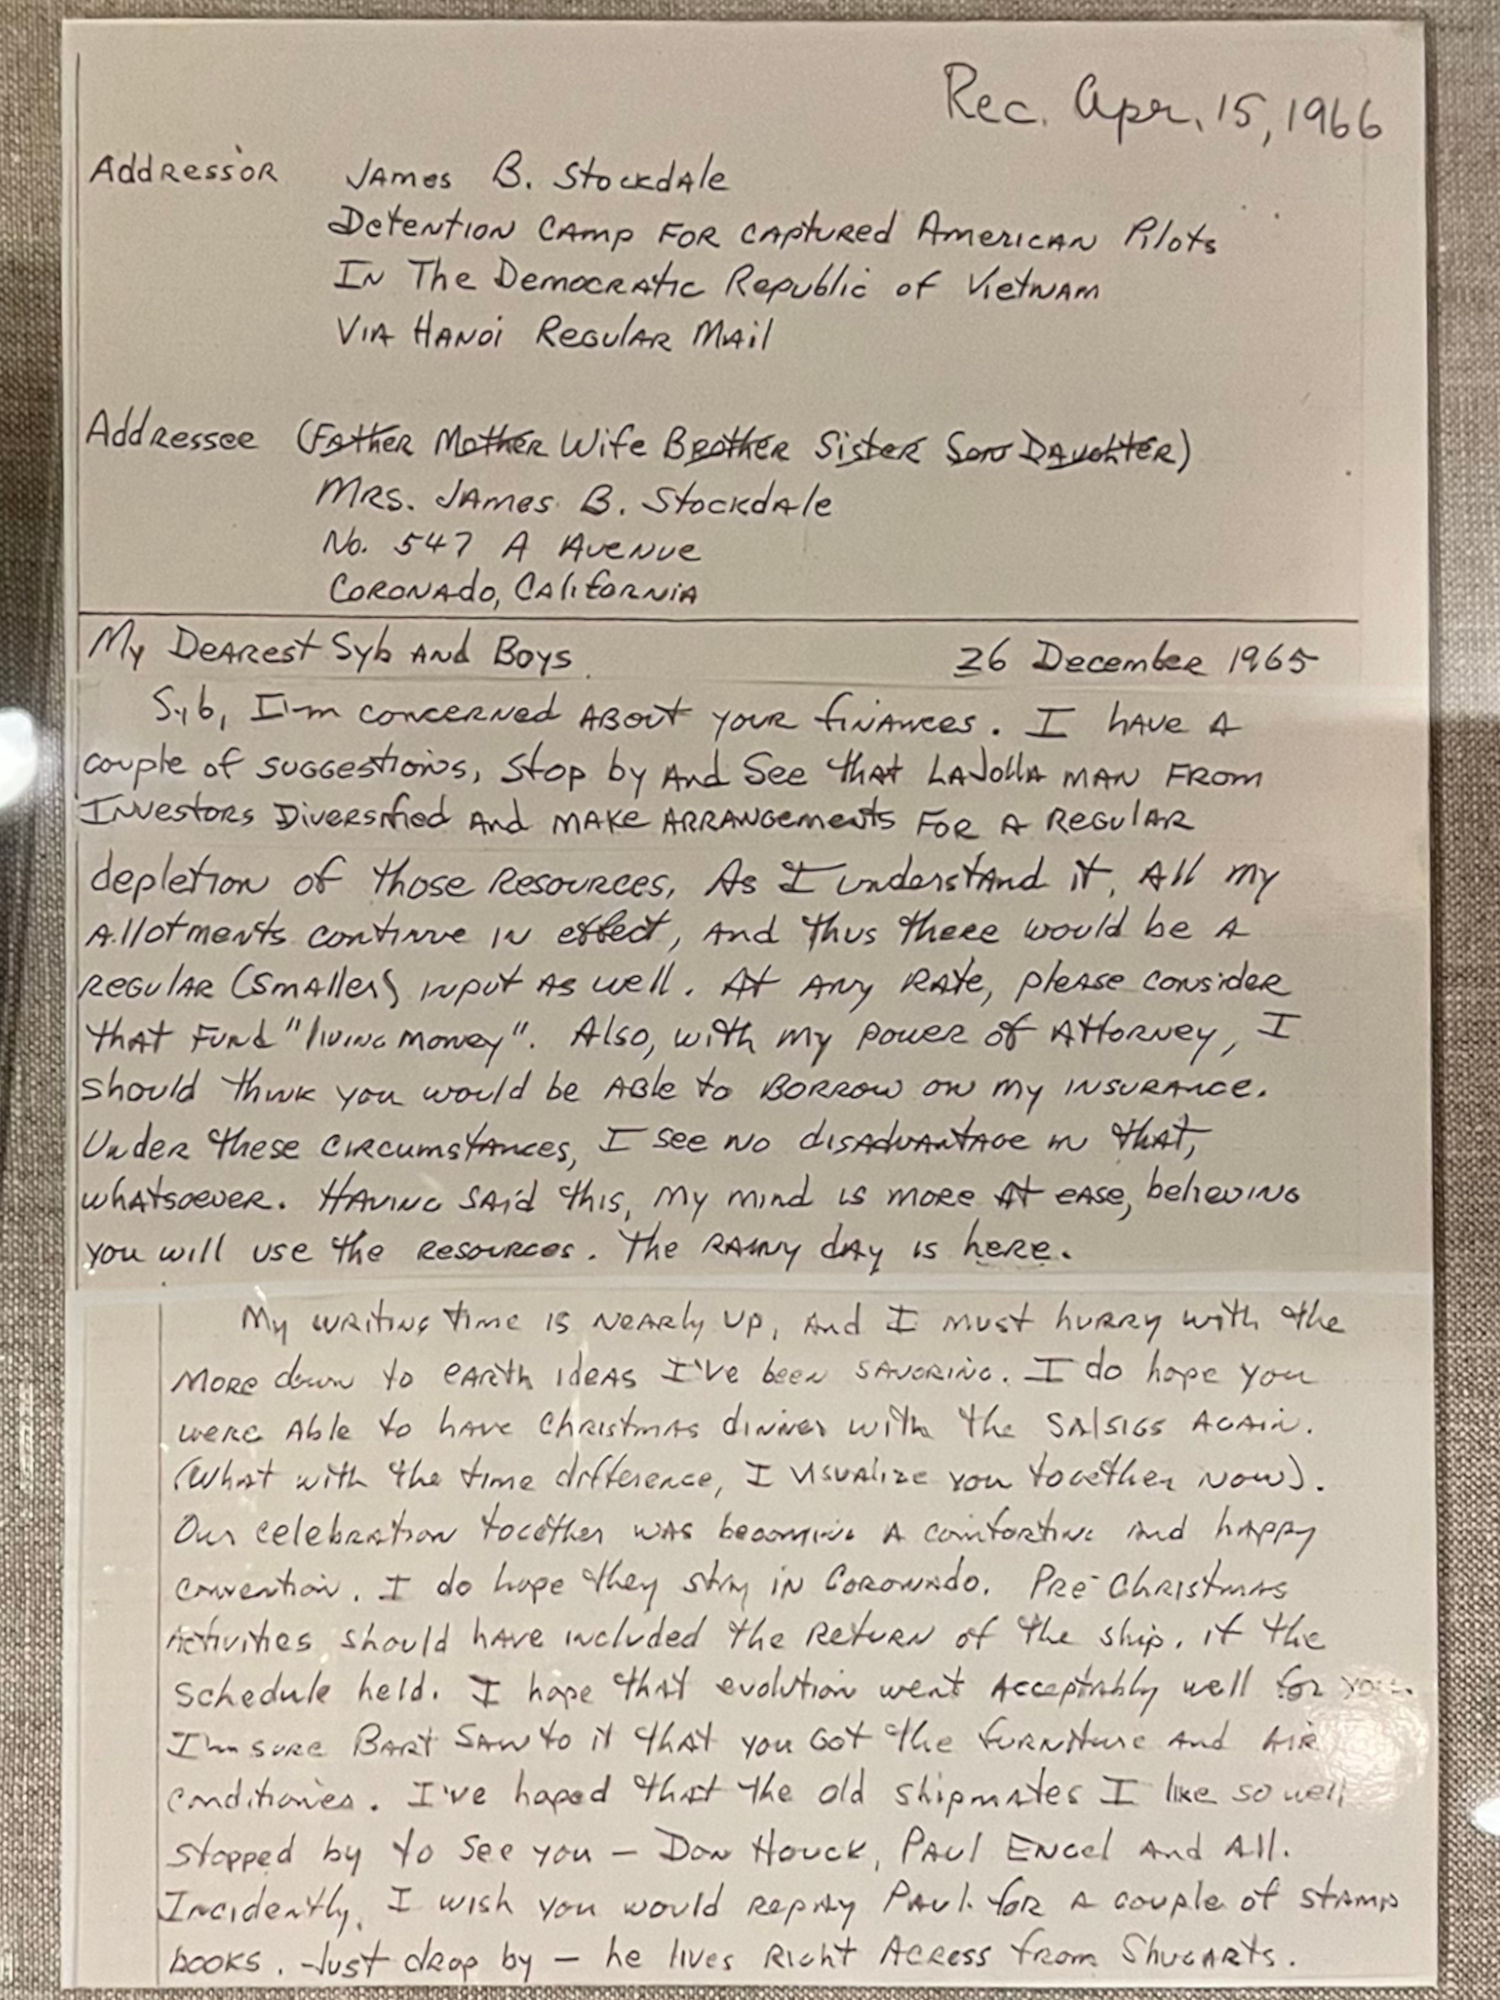 Rec. Apr. 15, 1966
Addressor James B. Stockdale
Detention Camp For Captured American Pilots
In The Democratic Republic of Vietnam
Via Hanoi Regular Mail
Addressee (Father Mother Wife Brother Sister Son Daughter)
Mrs. James B. Stockdale
No. 547 A Avenue
Coronado, California
My Dearest Syb and Boys
26 December 1965
Syb, I'm concerned about your finances. I have a
couple of suggestions, stop by and see that LaJolla man from
Investors Diversified and make arrangements for a regular
depletion of those resources. As I understand it, all my
allotments continue in effect, and thus there would be a
regular (smaller) input as well. At any rate, please consider
that fund "living money". Also, with my power of attorney, I
should think you would be able to borrow on my insurance.
Under these circumstances, I see no disadvantage in that,
whatsoever. Having said this, my mind is more at ease, believing
you will use the resources. The rainy day is here.
My writing time is nearly up, and I must hurry with the
more down to earth ideas I've been savoring. I do hope you
were able to have Christmas dinner with the Salsigs again.
(What with the time difference, I visualize you together now).
Our celebration together was becoming a comforting and happy
convention. I do hope they stay in Coronado. Pre-Christmas
activities should have included the return of the ship, if the
schedule held. I hope that evolution went acceptably well for you.
I'm sure Bart saw to it that you got the furniture and air
conditioner. I've hoped that the old shipmates I like so well
stopped by to see you - Don Houck, Paul Engel and all.
Incidently, I wish you would repay Paul for a couple of stamp
books. Just drop by - he lives right across from Shugarts.